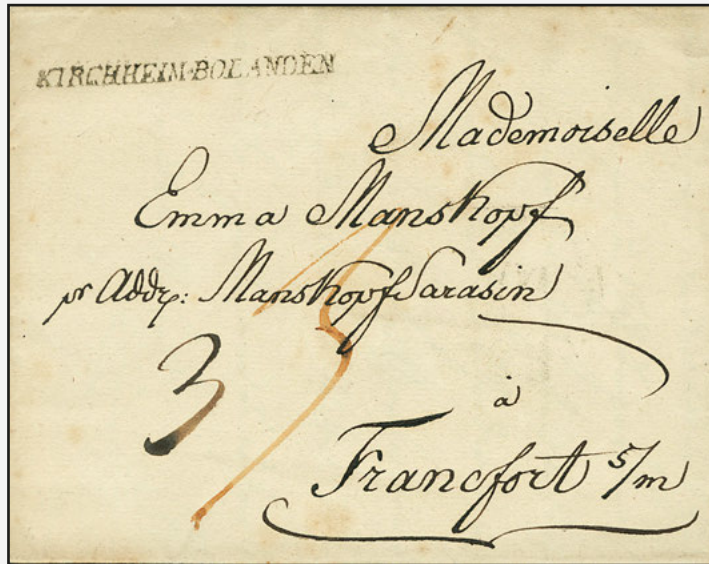 KIRCHHEIM-BOLANDEN
Mademoiselle
Emma Manskopf
pr Addr: Manskopf Sarasin
3
à
Francfort s/m